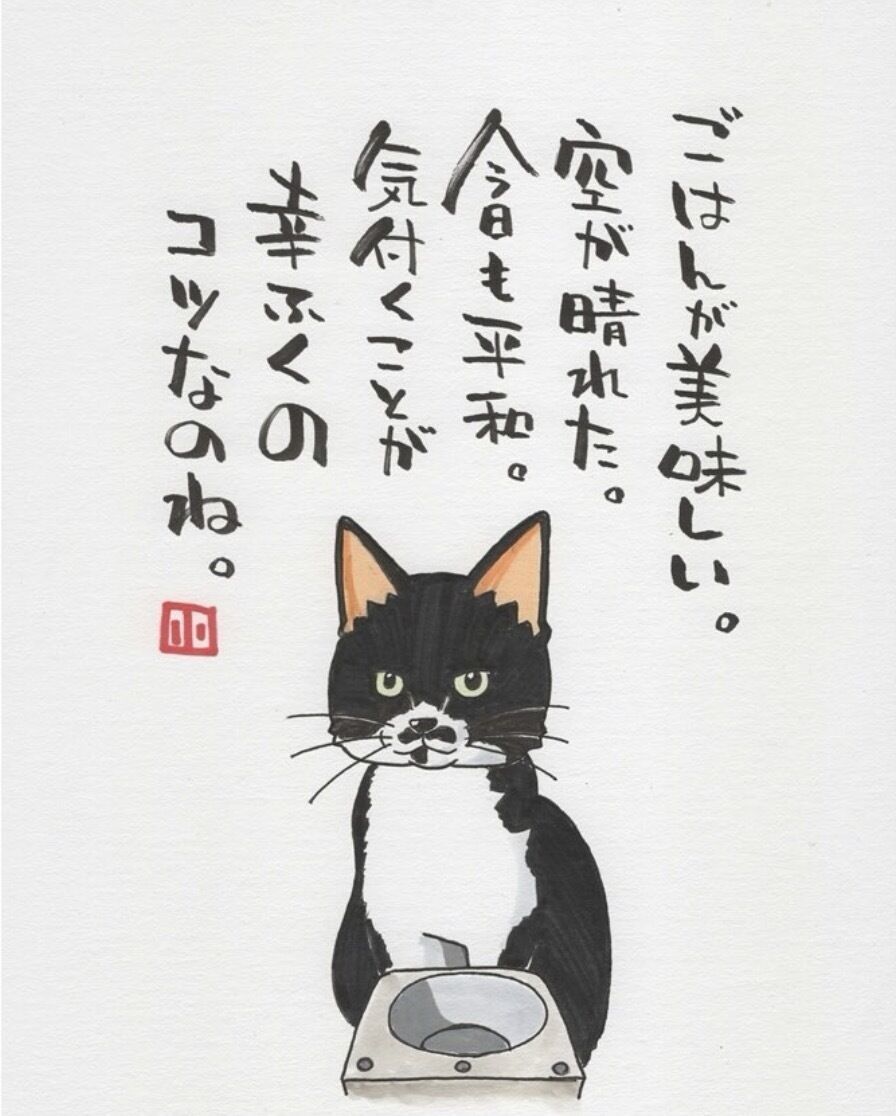 ごはんが美味しい。
空が晴れた。
今日も平和。
気付くことが
幸ふくの
コツなのね。